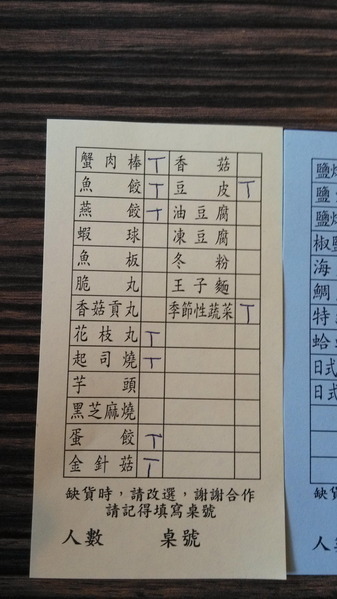 蟹肉棒 丅 香菇
魚餃 丅 豆皮 丅
燕餃 丅 油豆腐
蝦球 凍豆腐
魚板 冬粉
脆丸 王子麵
香菇貢丸 季節性蔬菜 丅
花枝丸 丅
起司燒 丅
芋頭
黑芝麻燒
蛋餃 丅
金針菇 丅
缺貨時，請改選，謝謝合作
請記得填寫桌號
人數 桌號
鹽
鹽
鹽
椒鹽
海
鯛
特
蛤
日式
日式
缺貨
人